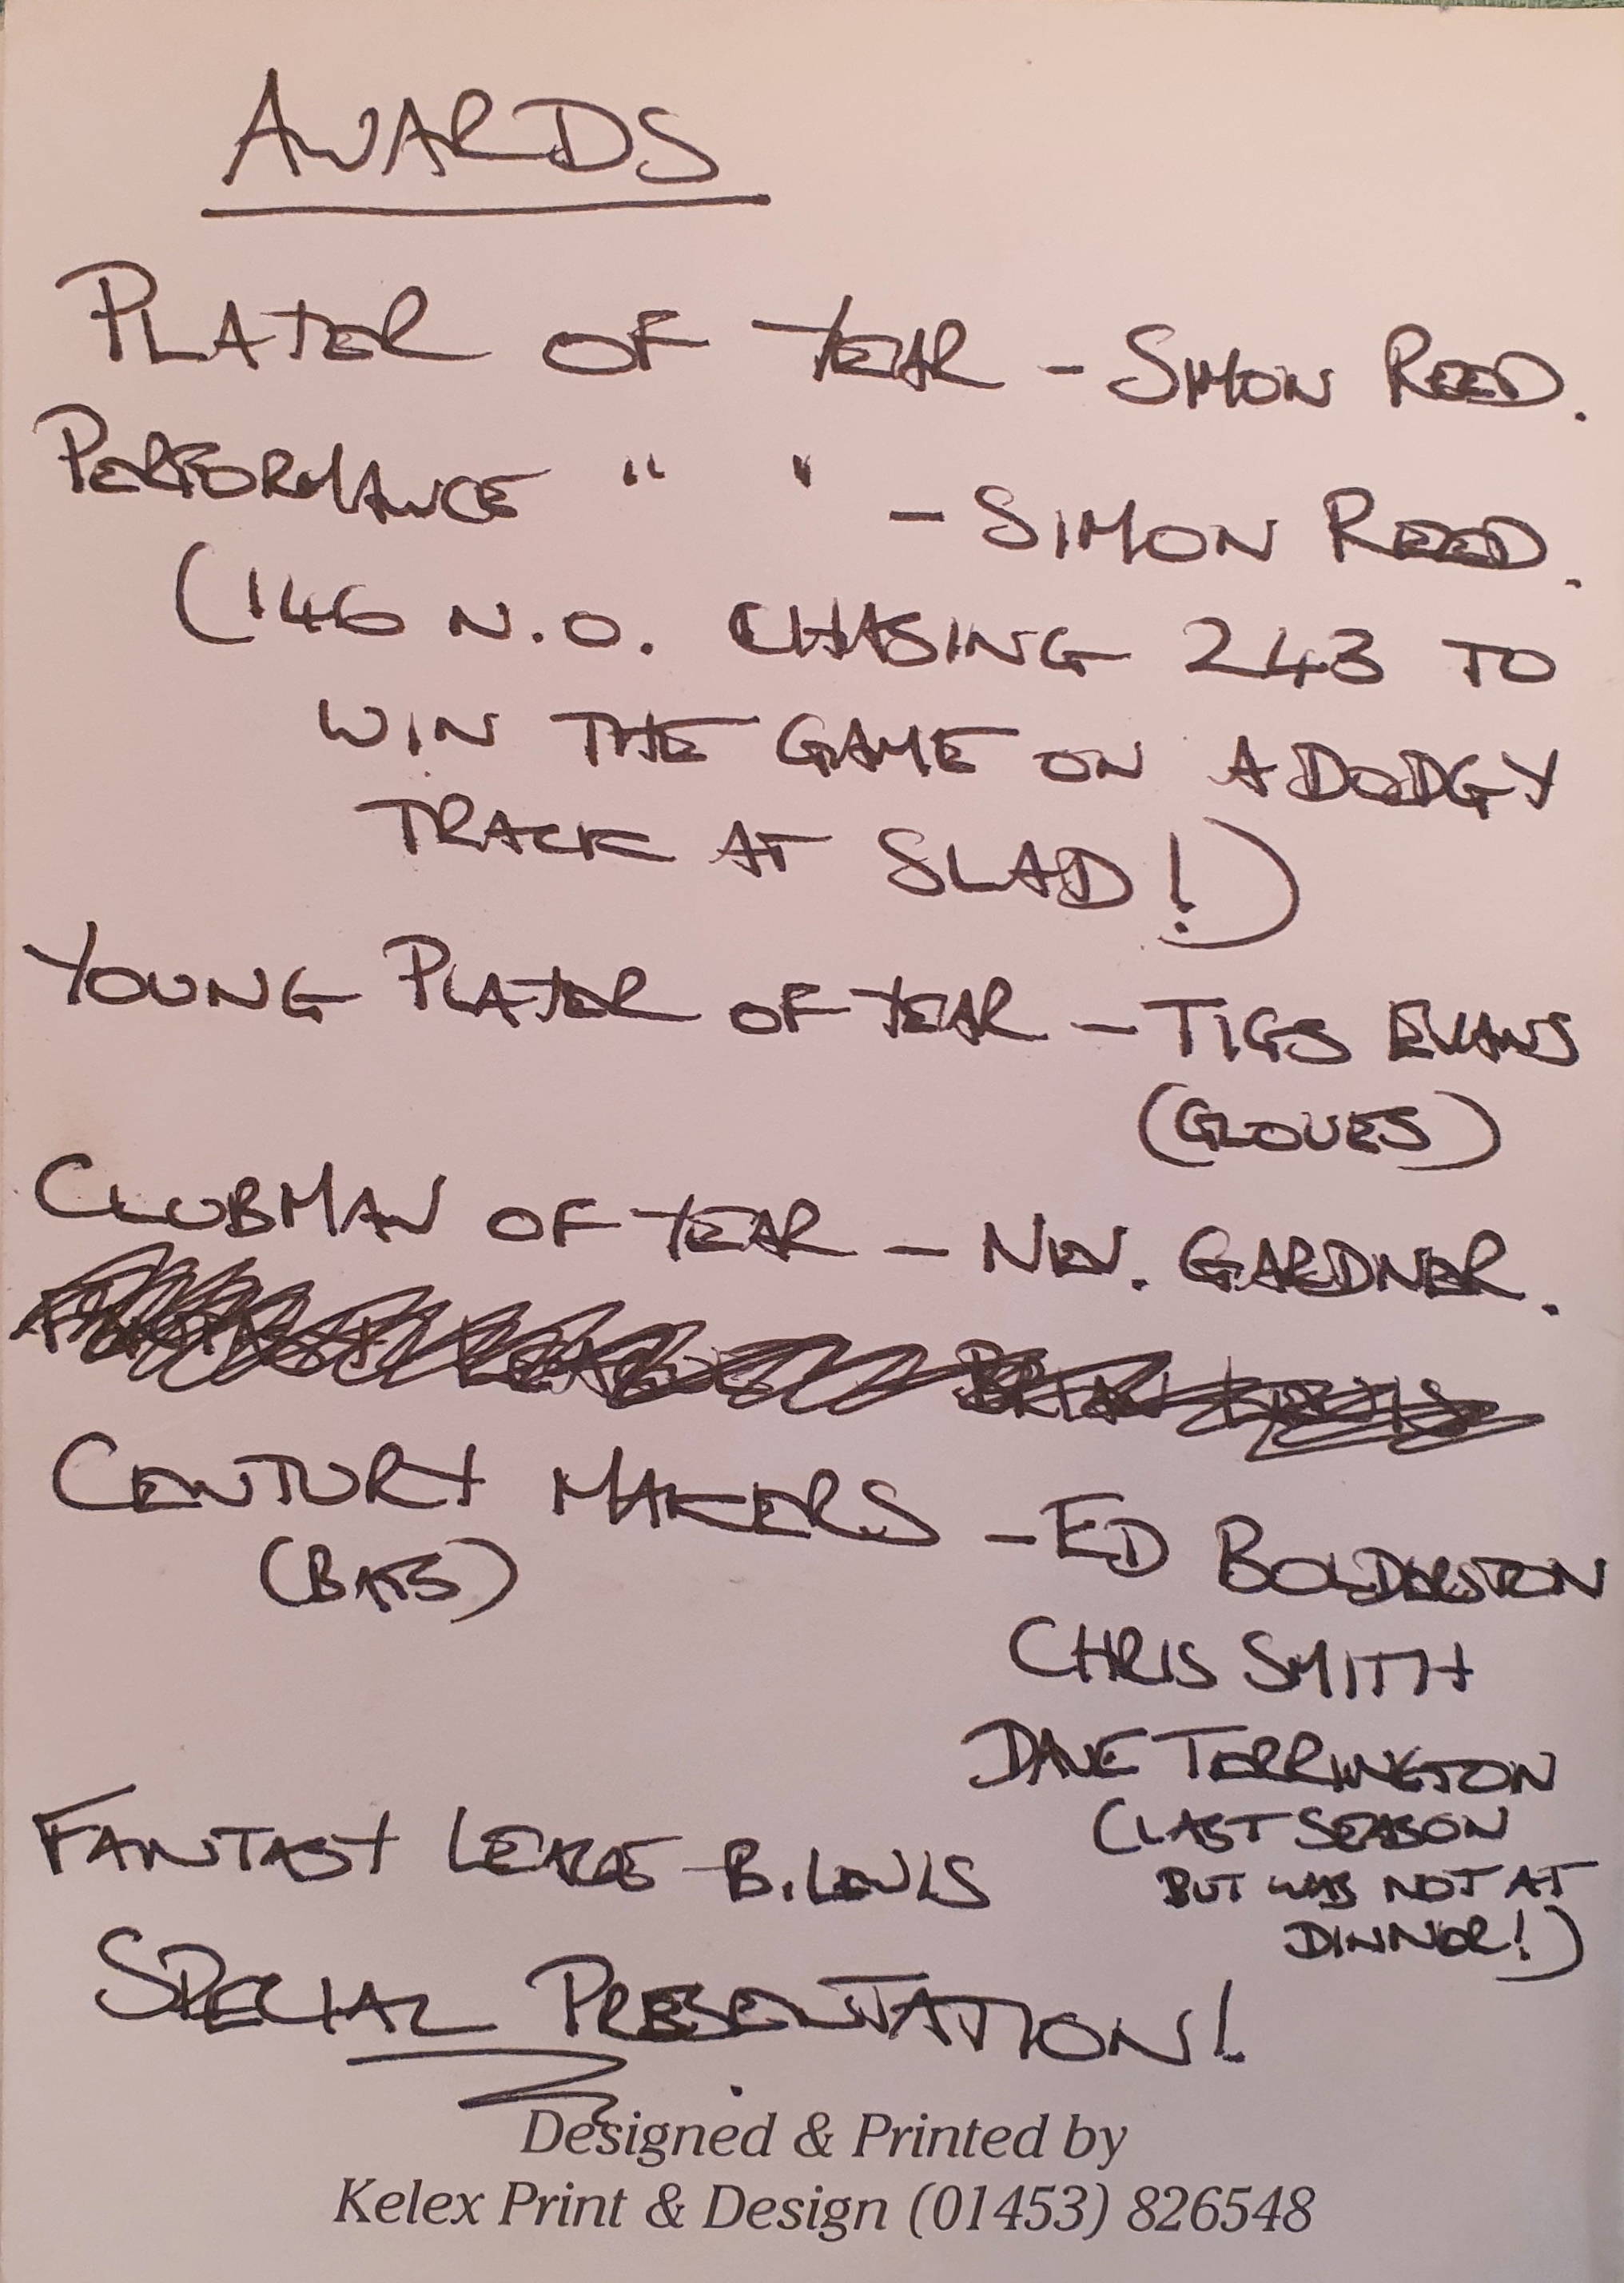 AWARDS
PLAYER OF YEAR - SIMON REED.
PERFORMANCE " " - SIMON REED.
(146 N.O. CHASING 243 TO
WIN THE GAME ON A DODGY
TRACK AT SLAD!)
YOUNG PLAYER OF YEAR - TIGS EVANS
(GLOVES)
CLUBMAN OF YEAR - NEV. GARDNER.
CENTURY MAKERS - ED BOLDERSTON
(BATS)
CHRIS SMITH
DAVE TORRINGTON
(LAST SEASON
BUT WAS NOT AT
DINNER!)
FANTASY LEAGUE - B. LEWIS
SPECIAL PRESENTATION!
Designed & Printed by
Kelex Print & Design (01453) 826548